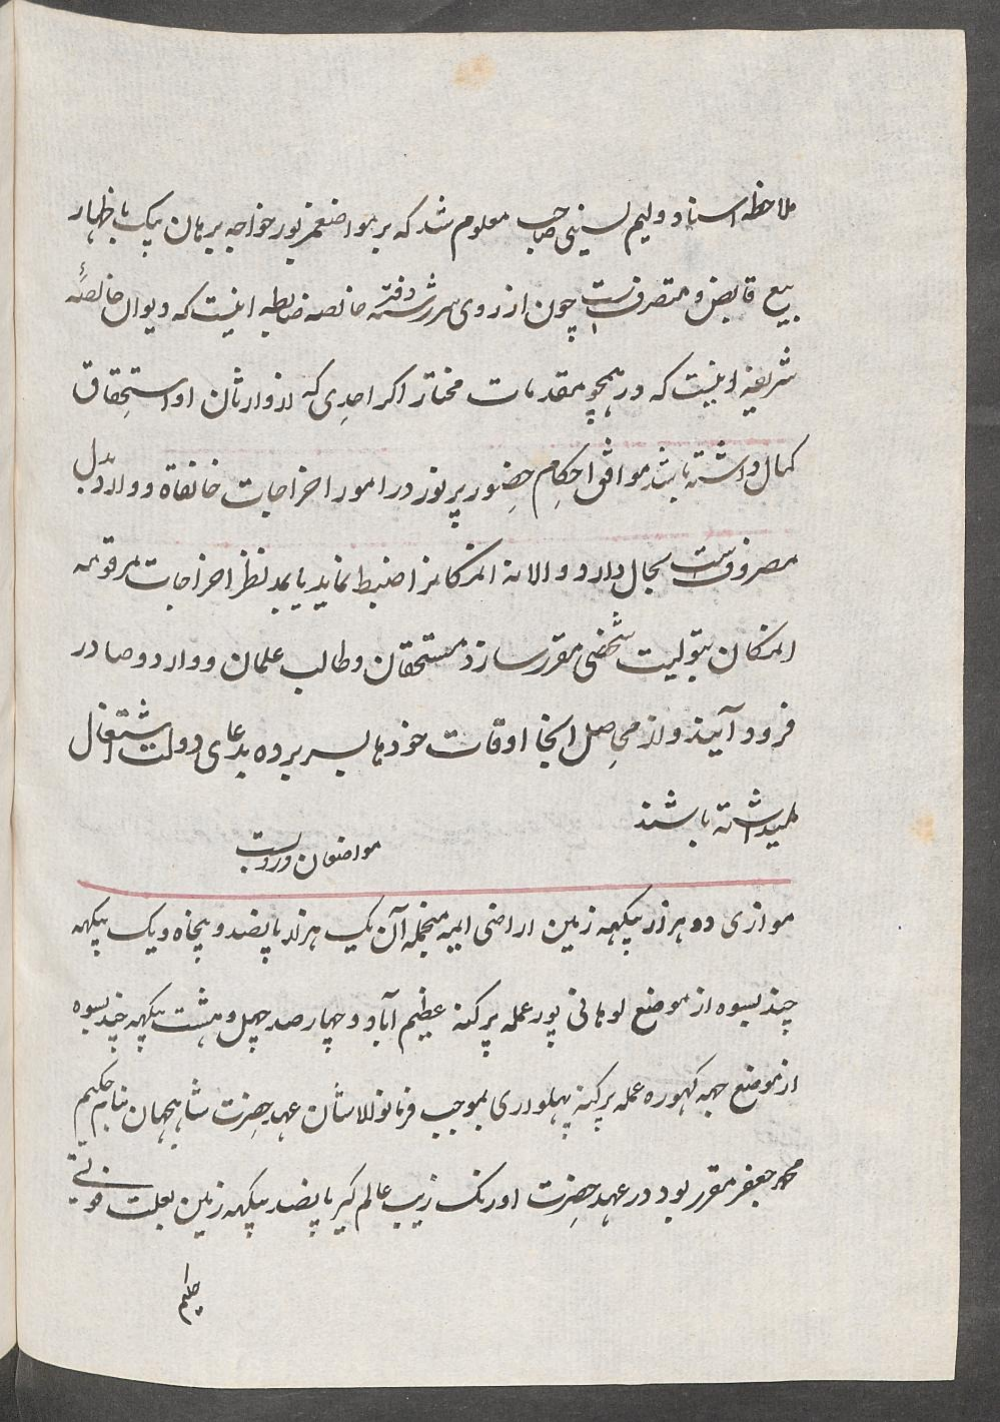 ملاحظه اسناد ولیم صاحب معلوم شد که بر مواضع پور خواجه برهان بیک باظهار
بیع قابض و متصرف است چون از روی سررشته دفتر خالصه ضابطه اینست که دیوان خالصهٔ
شریفه اینست که در همچو مقدمات مختار اکر احدی که از وارثان او استحقاق
کمال داشته باشد موافق احکام حضور پرنور در امور اخراجات خانقاه و وارد
مصروفست بحال دارد والا نه امکان را ضبط نماید یا بمد نظر اخراجات مرقومه
امکان بتولیت شخصی مقرر سازد مستحقان و طالب علمان و وارد و صادر
فرود آیند و از محاصل انجا اوقات خودها بسر برده بدعای دولت اشتغال
میداشته باشند
مواضعان دروبست
موازی دو هزار بیکهه زمین اراضی ایمه منجمله آن یک هزار پانصد و پنجاه و یک بیکهه
چند بسوه از موضع لوهانی پور عمله پرکنه عظیم آباد و چهار صد چهل و هشت بیکهه چند بسوه
از موضع کهوره عمله پرکنه پهلواری بموجب فرمان عهد حضرت شاهجهان بنام حکیم
محمد جعفر مقرر بود در عهد حضرت اورنک زیب عالم کیر پانصد بیکهه زمین بعلت فوتی
حکیم